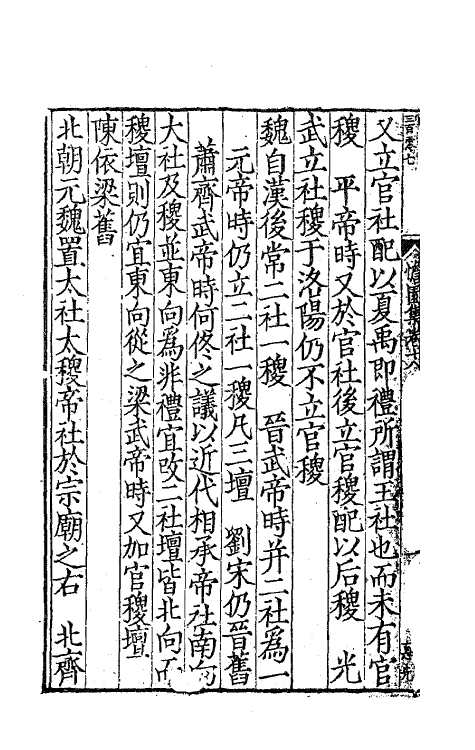 又立官社配以夏禹即禮所謂王社也而未有官
稷　平帝時又於官社後立官稷配以后稷　光
武立社稷于洛陽仍不立官稷
魏自漢後常二社一稷　晉武帝時并二社爲一
元帝時仍立二社一稷凡三壇　劉宋仍晉舊
蕭齊武帝時何佟之議以近代相承帝社南向
大社及稷並東向爲非禮宜改二社壇皆北向而
稷壇則仍宜東向從之梁武帝時又加官稷壇
陳依梁舊
北朝元魏置太社太稷帝社於宗廟之右　北齊